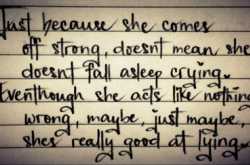 Just because she comes
off strong, doesnt mean she
doesnt fall asleep crying.
Eventhough she acts like nothing
wrong, maybe, just maybe,
shes really good at lying.